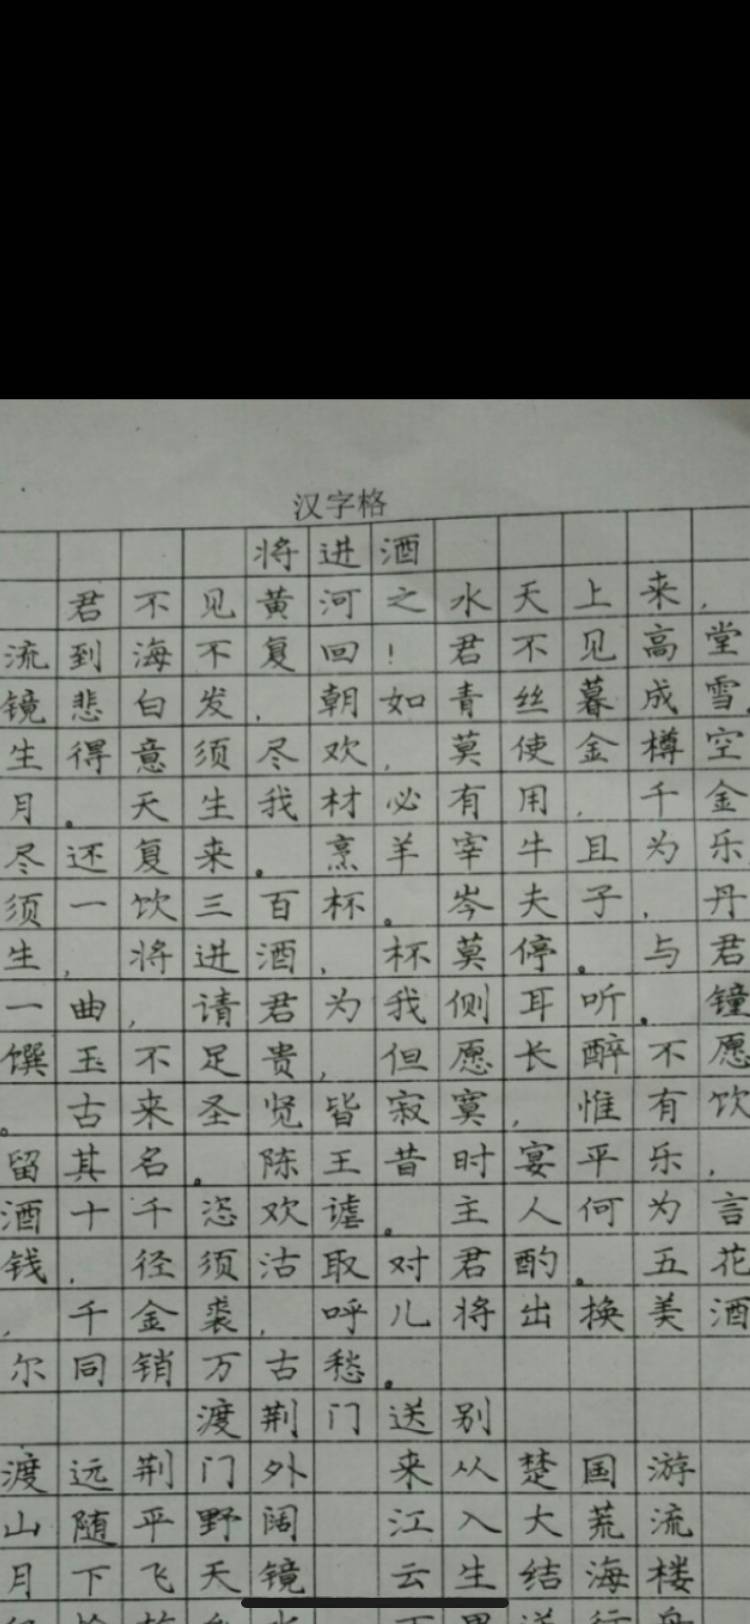 汉字格
将进酒
君不见黄河之水天上来，
流到海不复回！君不见高堂
镜悲白发，朝如青丝暮成雪，
生得意须尽欢，莫使金樽空
月。天生我材必有用，千金
尽还复来。烹羊宰牛且为乐
须一饮三百杯。岑夫子，丹
生，将进酒，杯莫停。与君
一曲，请君为我侧耳听。钟
馔玉不足贵，但愿长醉不愿
。古来圣贤皆寂寞，惟有饮
留其名。陈王昔时宴平乐，
酒十千恣欢谑。主人何为言
钱，径须沽取对君酌。五花
，千金裘，呼儿将出换美酒
尔同销万古愁。
渡荆门送别
渡远荆门外 来从楚国游
山随平野阔 江入大荒流
月下飞天镜 云生结海楼